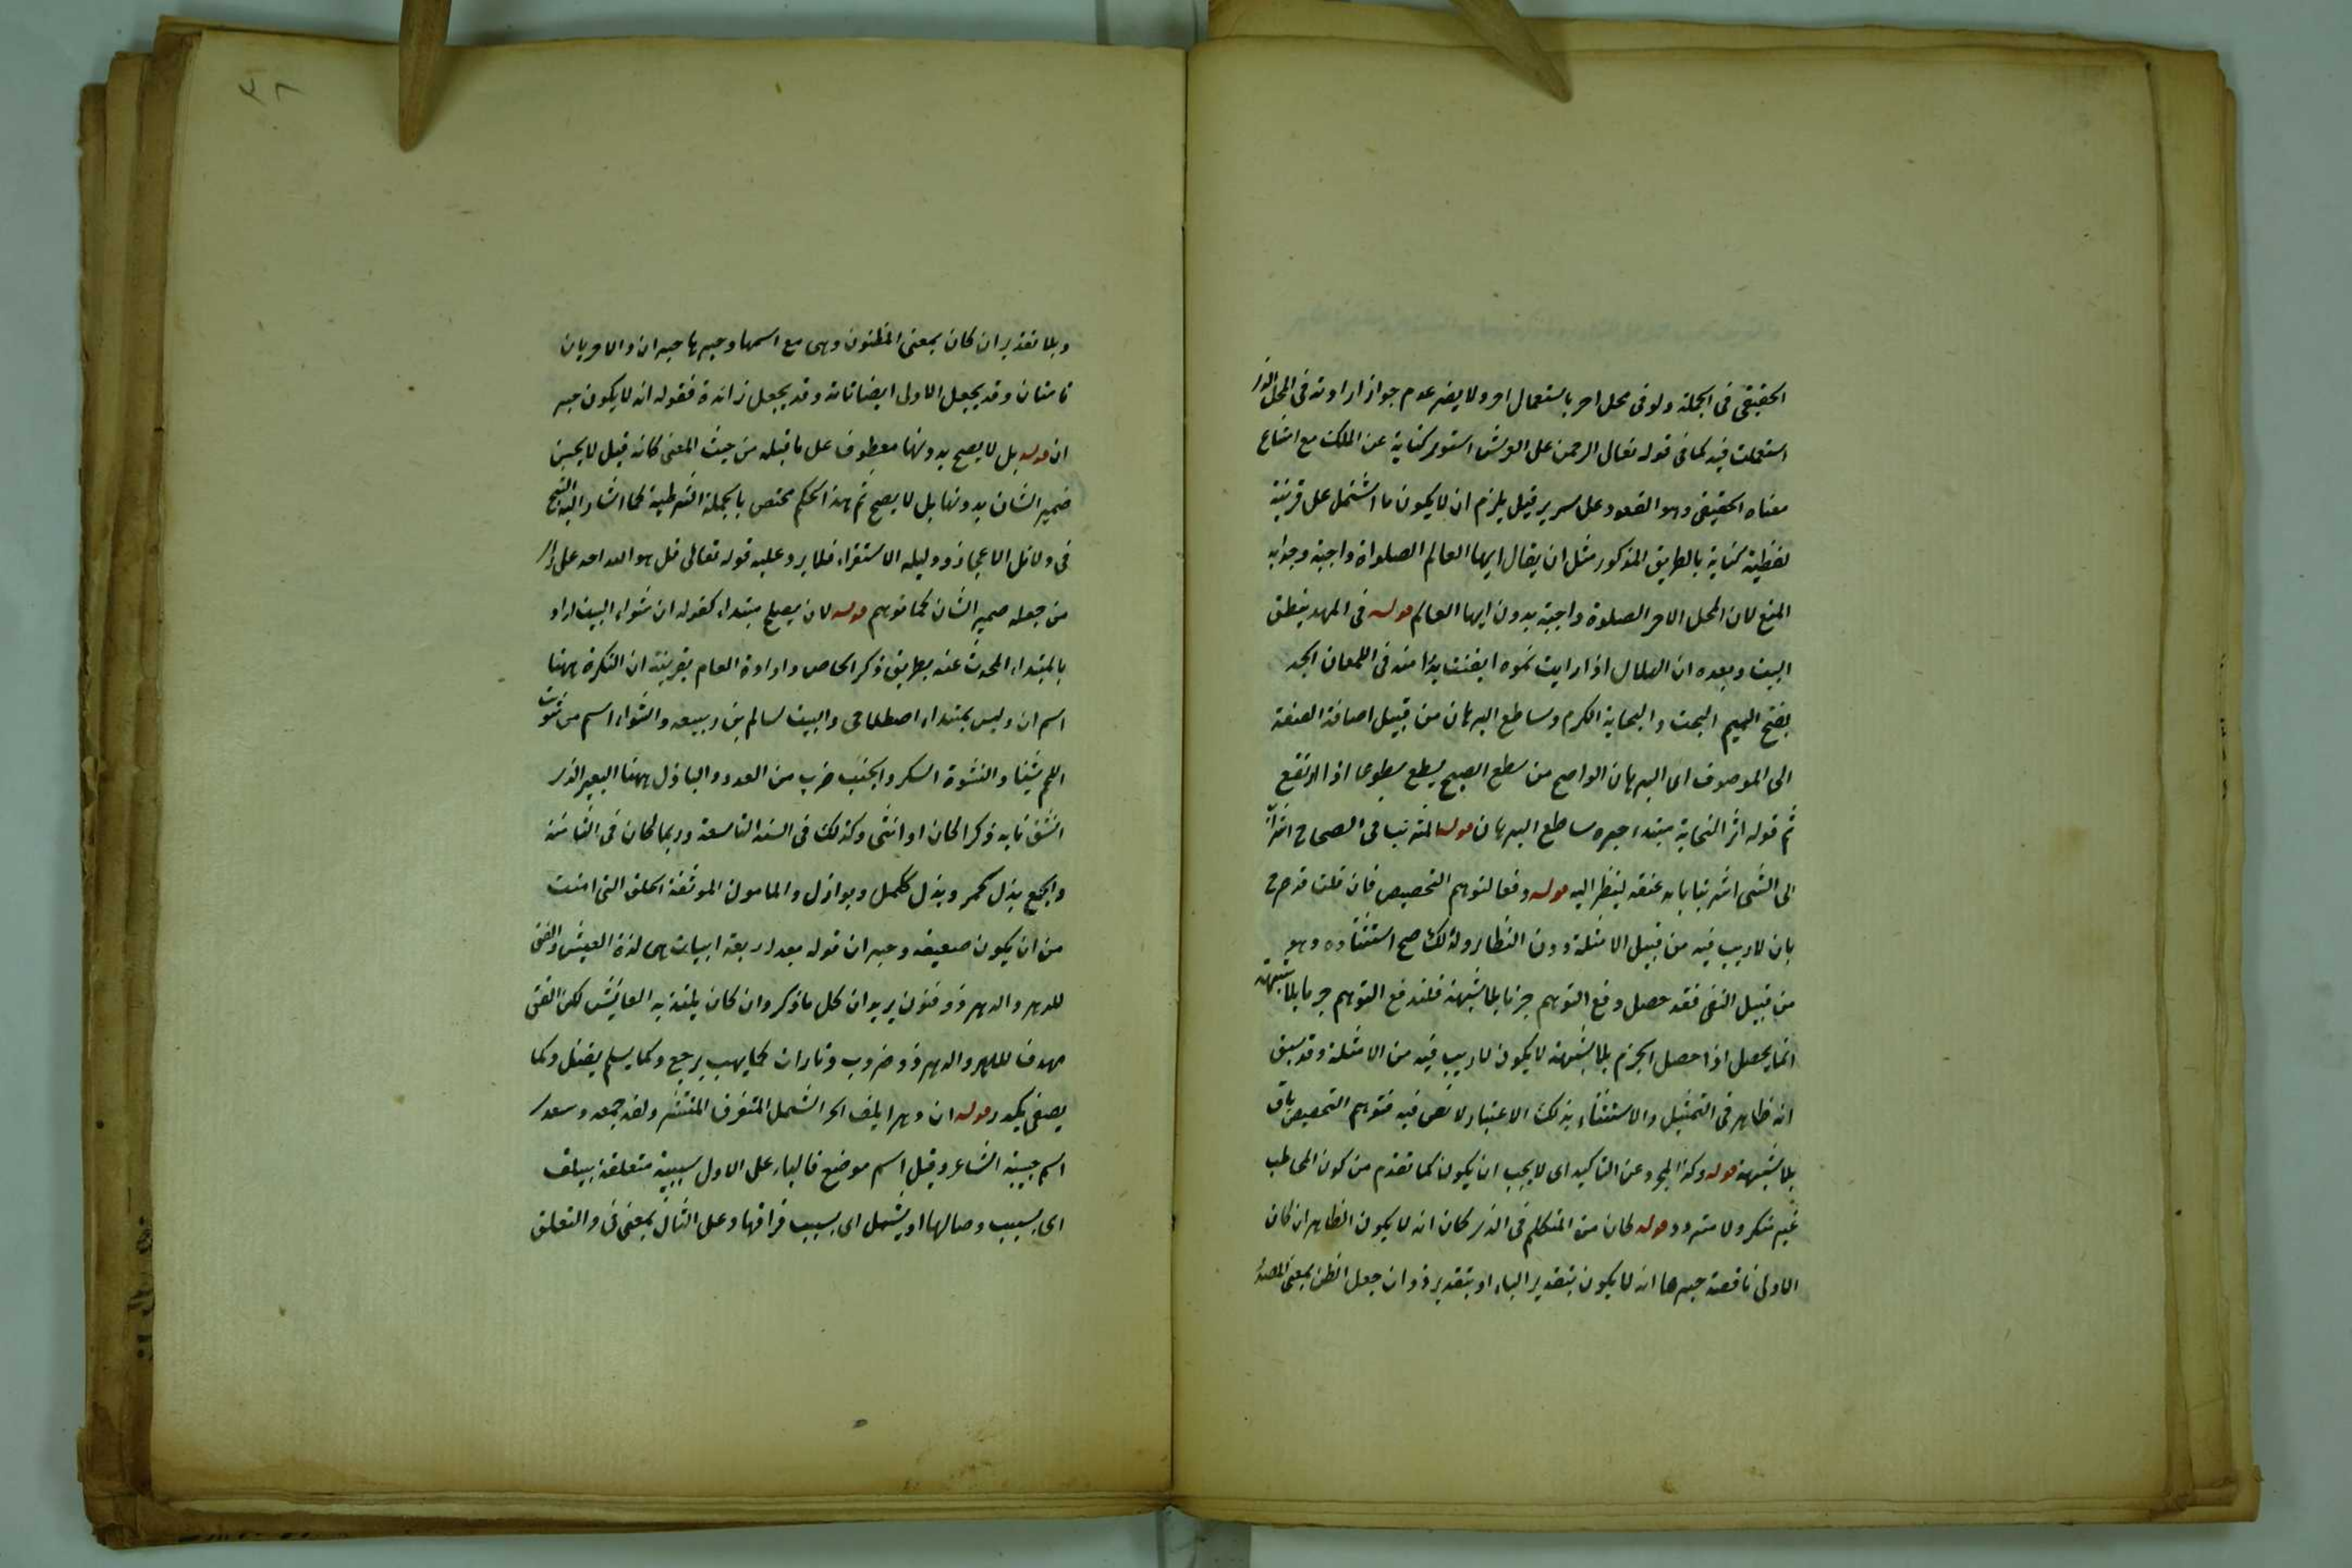 الحقيقى فى الجملة ولو فى محل اخر باستعمال اخر ولا يضر عدم جواز ارادته فى المحل الذى
استعملت فيه كما فى قوله تعالى الرحمن على العرش استوى كناية عن الملك مع امتناع
معناه الحقيقى وهو القعود على سرير قيل يلزم ان لا يكون ما اشتمل على قرينة
لفظية كناية بالطريق المذكور مثل ان يقال ايها العالم الصلواة واجبة وجوابه
المنع لان المحل الاخر الصلوة واجبة بدون ايها العالم قوله فى المهد ينطق
البيت وبعده ان الهلال اذا رايت نموه ايقنت بدرا منه فى اللمعان الجد
بفتح الجيم البخت و النجابة الكرم وساطع البرهان من قبيل اضافة الصفة
الى الموصوف اى البرهان الواضح من سطع الصبح يسطع سطوعا اذا ارتفع
ثم قوله اثر النجابة مبتداء خبره ساطع البرهان قوله المتر فى الصحاح
الى الشى عنقه لينظر اليه قوله دفعا لتوهم التخصيص فان قلت قد صرح
بان لا ريب فيه من قبيل الامثلة دون النظاير ولذلك صح استثناؤه وهو
من قبيل النفى فقد حصل دفع التوهم جزما بلا شبهة قلت دفع التوهم جزما بلا شبهة
انما يحصل اذا حصل الجزم بلا شبهة لا يكون لا ريب فيه من الامثلة وقد سبق
انه ظاهر فى التمثيل والاستثناء بذلك الاعتبار لا نص فيه فتوهم التخصيص باق
بلا شبهة قوله وكذا المجرد عن التاكيد اى لا يجب ان يكون كما تقدم من كون المخاطب
غير منكر ولا متردد قوله كان من المتكلم فى الذى كان انه لا يكون الظاهر ان كان
الاولى ناقصة خبرها انه لا يكون بتقدير الباء او بتقدير ذو ان جعل الظن بمعنى المصدر
٣٨
وبلا تقدير ان كان بمعنى المظنون وهى مع اسمها وخبرها خبر ان والاخريان
تامتان وقد يجعل الاولى ايضا تامة وقد يجعل زائدة فقوله انه لا يكون خبر
ان قوله بل لا يصح بدونها معطوف على ما قبله من حيث المعنى كانه قيل لا يحسن
ضمير الشان بدونها بل لا يصح ثم هذا الحكم مختص بالجملة الشرطية كما اشار اليه الشيخ
فى دلائل الاعجاز ودليله الاستقراء فلا يرد عليه قوله تعالى قل هو الله احد على
من جعله ضمير الشان كما توهم قوله لان يصلح مبتداء كقوله ان شواء البيت اراد
بالمبتداء المحدث عنه بطريق ذكر الخاص وارادة العام بقرينة ان النكرة ههنا
اسم ان وليس بمبتداء اصطلاحى والبيت لسالم بن ربيعه والشواء اسم من شويت
اللحم شيئا والنشوة السكر والخبب ضرب من العدو والبازل ههنا البعير الذى
انشق نابه ذكرا كان او انثى وكذلك فى السنة التاسعة وربما كان فى الثامنة
والجمع بذل كحمر وبذل ككمل وبوازل والمامون الموثقة الخلق التى امنت
من ان يكون ضعيفه وخبر ان قوله بعد اربعة ابيات هى لذة العيش والفتى
للدهر والدهر ذو فنون يريد ان كل ما ذكر وان كان يلتذ به العائش لكن الفتى
هدف للدهر والدهر ذو ضروب وتارات كما يهب يرجع وكما يسلم يقتل وكما
يصفى يكدر قوله ان دهرا يلف الخ الشمل المتفرق المنتشر ولفه جمعه وسعدى
اسم حبيبة الشاعر وقيل اسم موضع فالباء على الاول سببية متعلقة بيلف
اى بسبب وصالها او بشمل اى بسبب فراقها وعلى الثانى بمعنى فى والتعلق